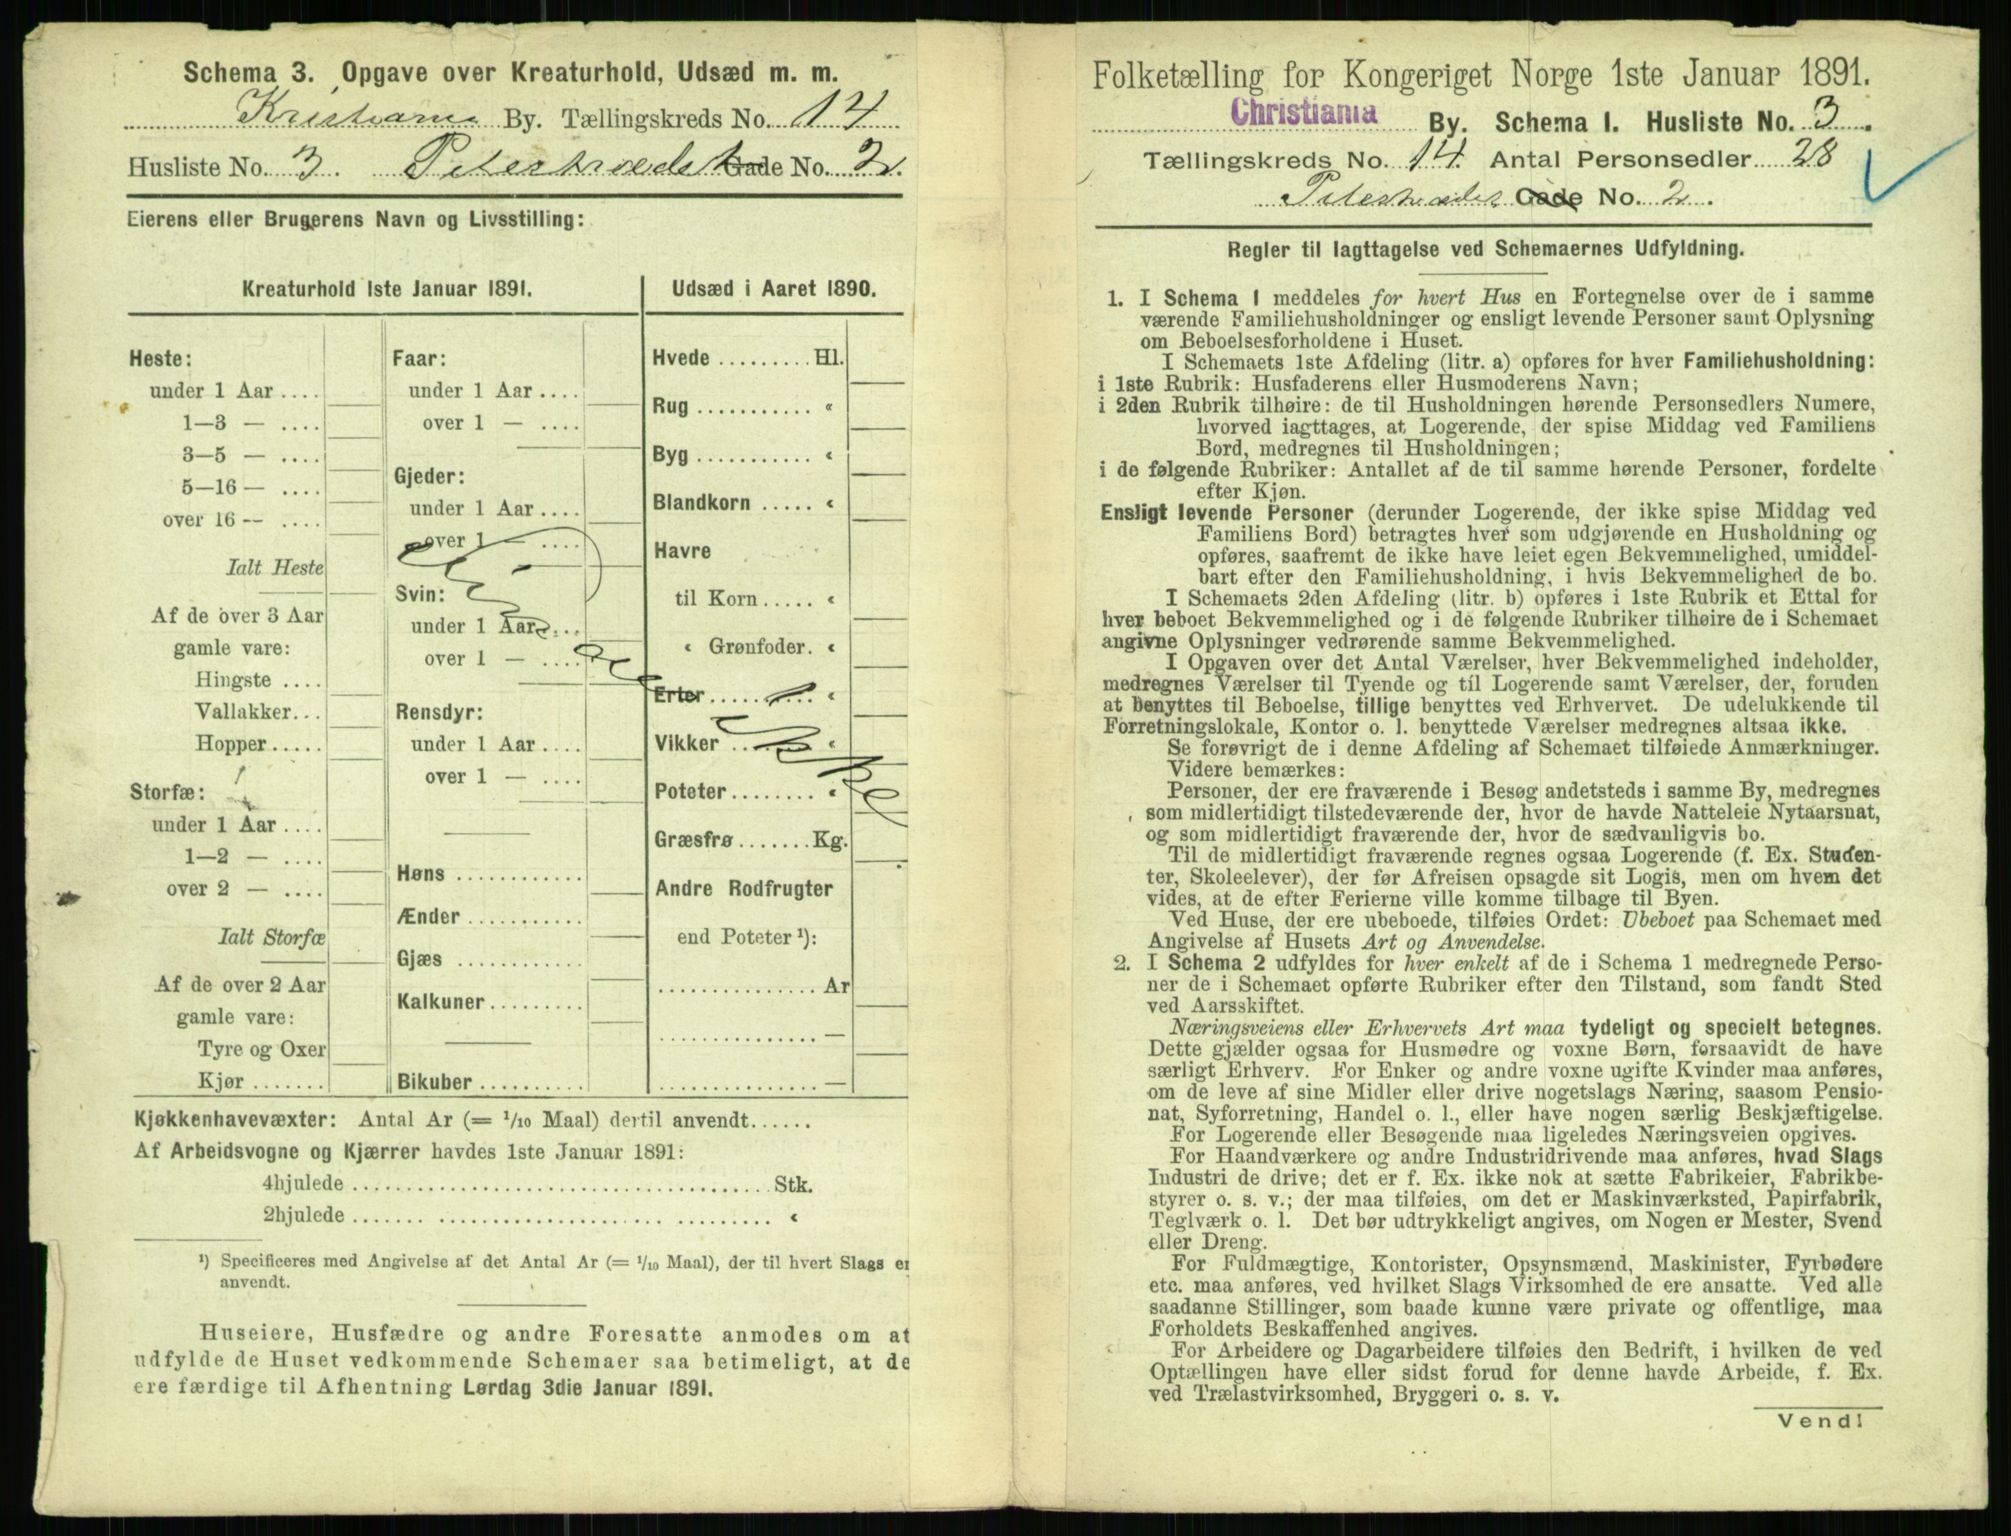 Schema 3. Opgave over Kreaturhold, Udsæd m. m.
Kristiania By. Tællingskreds No. 14
Husliste No. 3. Pilestrædet Gade No. 2.
Eierens eller Brugerens Navn og Livsstilling:
Kreaturhold 1ste Januar 1891.
Heste:
under 1 Aar ....
1—3 — ....
3—5 — ....
5—16 — ....
over 16 — ....
Ialt Heste
Af de over 3 Aar
gamle vare:
Hingste ....
Vallakker...
Hopper.....
Storfæ:
under 1 Aar ....
1—2 — ....
over 2 — ....
Ialt Storfæ
Af de over 2 Aar
gamle vare:
Tyre og Oxer
Kjør .......
Faar:
under 1 Aar ....
over 1 — ....
Gjeder:
under 1 Aar ....
over 1 — ....
Svin:
under 1 Aar ....
over 1 — ....
Rensdyr:
under 1 Aar ....
over 1 — ....
Høns ............
Ænder ...........
Gjæs ............
Kalkuner.........
Bikuber ..........
Udsæd i Aaret 1890.
Hvede ......... Hl.
Rug ........... «
Byg ........... «
Blandkorn ..... «
Havre
til Korn ..... «
« Grønfoder. «
Erter ......... «
Vikker ........ «
Poteter ........ «
Græsfrø ....... Kg.
Andre Rodfrugter
end Poteter ¹):
............... Ar
............... —
............... —
Kjøkkenhavevæxter: Antal Ar (= 1/10 Maal) dertil anvendt......
Af Arbeidsvogne og Kjærrer havdes 1ste Januar 1891:
4hjulede ........................................ Stk.
2hjulede ........................................ «
¹) Specificeres med Angivelse af det Antal Ar (= 1/10 Maal), der til hvert Slags er
anvendt.
Huseiere, Husfædre og andre Foresatte anmodes om at
udfylde de Huset vedkommende Schemaer saa betimeligt, at de
ere færdige til Afhentning Lørdag 3die Januar 1891.
Folketælling for Kongeriget Norge 1ste Januar 1891.
Christiania By. Schema I. Husliste No. 3.
Tællingskreds No. 14. Antal Personsedler 28
Pilestrædet Gade No. 2.
Regler til Iagttagelse ved Schemaernes Udfyldning.
1. I Schema 1 meddeles for hvert Hus en Fortegnelse over de i samme
værende Familiehusholdninger og ensligt levende Personer samt Oplysning
om Beboelsesforholdene i Huset.
I Schemaets 1ste Afdeling (litr. a) opføres for hver Familiehusholdning:
i 1ste Rubrik: Husfaderens eller Husmoderens Navn;
i 2den Rubrik tilhøire: de til Husholdningen hørende Personsedlers Numere,
hvorved iagttages, at Logerende, der spise Middag ved Familiens
Bord, medregnes til Husholdningen;
i de følgende Rubriker: Antallet af de til samme hørende Personer, fordelte
efter Kjøn.
Ensligt levende Personer (derunder Logerende, der ikke spise Middag ved
Familiens Bord) betragtes hver som udgjørende en Husholdning og
opføres, saafremt de ikke have leiet egen Bekvemmelighed, umiddel-
bart efter den Familiehusholdning, i hvis Bekvemmelighed de bo.
I Schemaets 2den Afdeling (litr. b) opføres i 1ste Rubrik et Ettal for
hver beboet Bekvemmelighed og i de følgende Rubriker tilhøire de i Schemaet
angivne Oplysninger vedrørende samme Bekvemmelighed.
I Opgaven over det Antal Værelser, hver Bekvemmelighed indeholder,
medregnes Værelser til Tyende og til Logerende samt Værelser, der, foruden
at benyttes til Beboelse, tillige benyttes ved Erhvervet. De udelukkende til
Forretningslokale, Kontor o. l. benyttede Værelser medregnes altsaa ikke.
Se forøvrigt de i denne Afdeling af Schemaet tilføiede Anmærkninger.
Videre bemærkes:
Personer, der ere fraværende i Besøg andetsteds i samme By, medregnes
som midlertidigt tilstedeværende der, hvor de havde Natteleie Nytaarsnat,
og som midlertidigt fraværende der, hvor de sædvanligvis bo.
Til de midlertidigt fraværende regnes ogsaa Logerende (f. Ex. Studen-
ter, Skoleelever), der før Afreisen opsagde sit Logis, men om hvem det
vides, at de efter Ferierne ville komme tilbage til Byen.
Ved Huse, der ere ubeboede, tilføies Ordet: Ubeboet paa Schemaet med
Angivelse af Husets Art og Anvendelse.
2. I Schema 2 udfyldes for hver enkelt af de i Schema 1 medregnede Perso-
ner de i Schemaet opførte Rubriker efter den Tilstand, som fandt Sted
ved Aarsskiftet.
Næringsveiens eller Erhvervets Art maa tydeligt og specielt betegnes.
Dette gjælder ogsaa for Husmødre og voxne Børn, forsaavidt de have
særligt Erhverv. For Enker og andre voxne ugifte Kvinder maa anføres,
om de leve af sine Midler eller drive nogetslags Næring, saasom Pensio-
nat, Syforretning, Handel o. l., eller have nogen særlig Beskjæftigelse.
For Logerende eller Besøgende maa ligeledes Næringsveien opgives.
For Haandværkere og andre Industridrivende maa anføres, hvad Slags
Industri de drive; det er f. Ex. ikke nok at sætte Fabrikeier, Fabrikbe-
styrer o. s. v.; der maa tilføies, om det er Maskinværksted, Papirfabrik,
Teglværk o. l. Det bør udtrykkeligt angives, om Nogen er Mester, Svend
eller Dreng.
For Fuldmægtige, Kontorister, Opsynsmænd, Maskinister, Fyrbødere
etc. maa anføres, ved hvilket Slags Virksomhed de ere ansatte. Ved alle
saadanne Stillinger, som baade kunne være private og offentlige, maa
Forholdets Beskaffenhed angives.
For Arbeidere og Dagarbeidere tilføies den Bedrift, i hvilken de ved
Optællingen have eller sidst forud for denne havde Arbeide, f. Ex.
ved Trælastvirksomhed, Bryggeri o. s. v.
Vend!